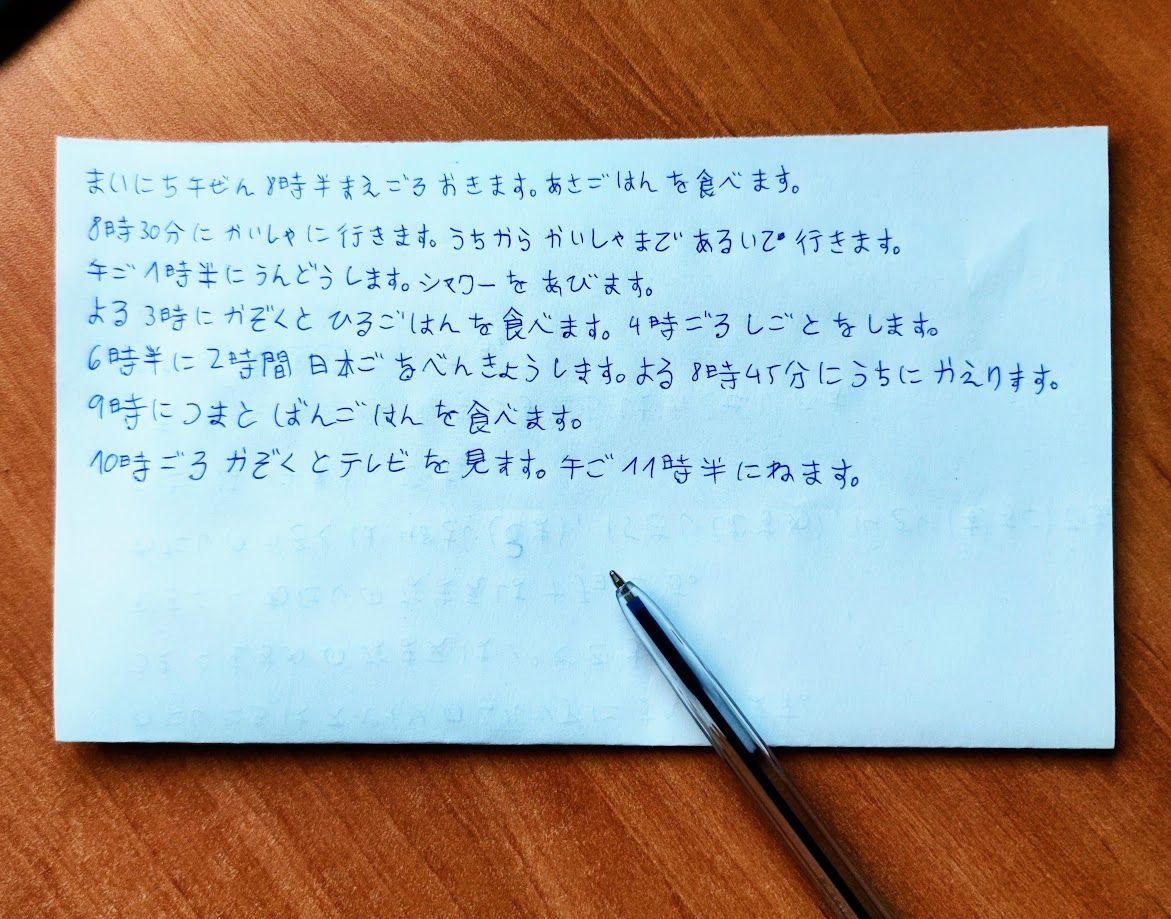 まいにち午ぜん8時半まえごろおきます。あさごはんを食べます。
8時30分にかいしゃに行きます。うちからかいしゃまであるいて行きます。
午ご1時半にうんどうします。シャワーをあびます。
よる3時にかぞくとひるごはんを食べます。4時ごろしごとをします。
6時半に2時間日本ごをべんきょうします。よる8時45分にうちにかえります。
9時につまとばんごはんを食べます。
10時ごろかぞくとテレビを見ます。午ご11時半にねます。